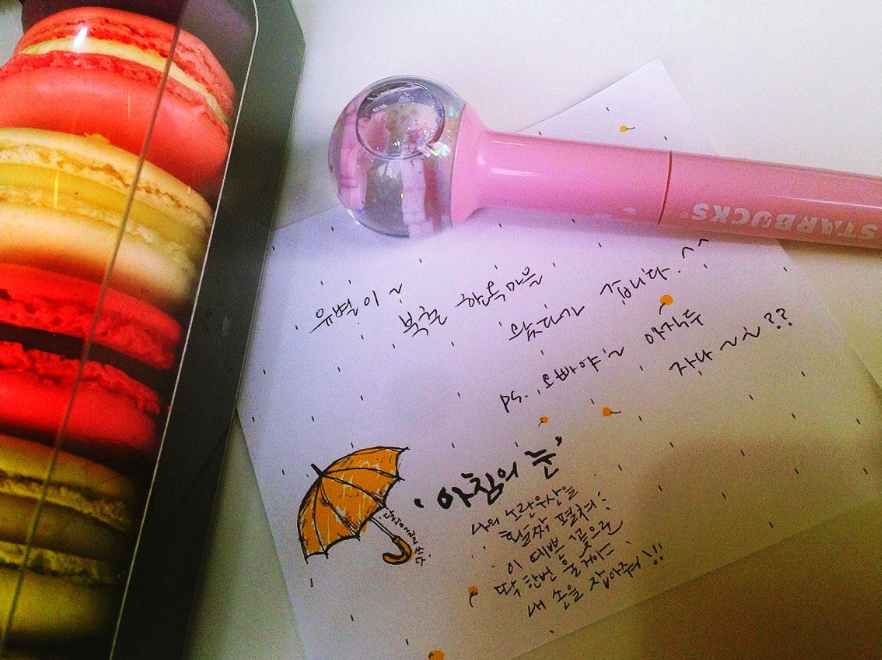 STARBUCKS
유별이~
복흔 한옥마을
왔다가 갑니다.^^
ps. 오빠야~ 아직두
자나~~??
'아침의 눈'
나의 노란우산을
활짝 펼쳐
이 예쁜 길으로
딱 한번 올게야
내 손을 잡아줘!!